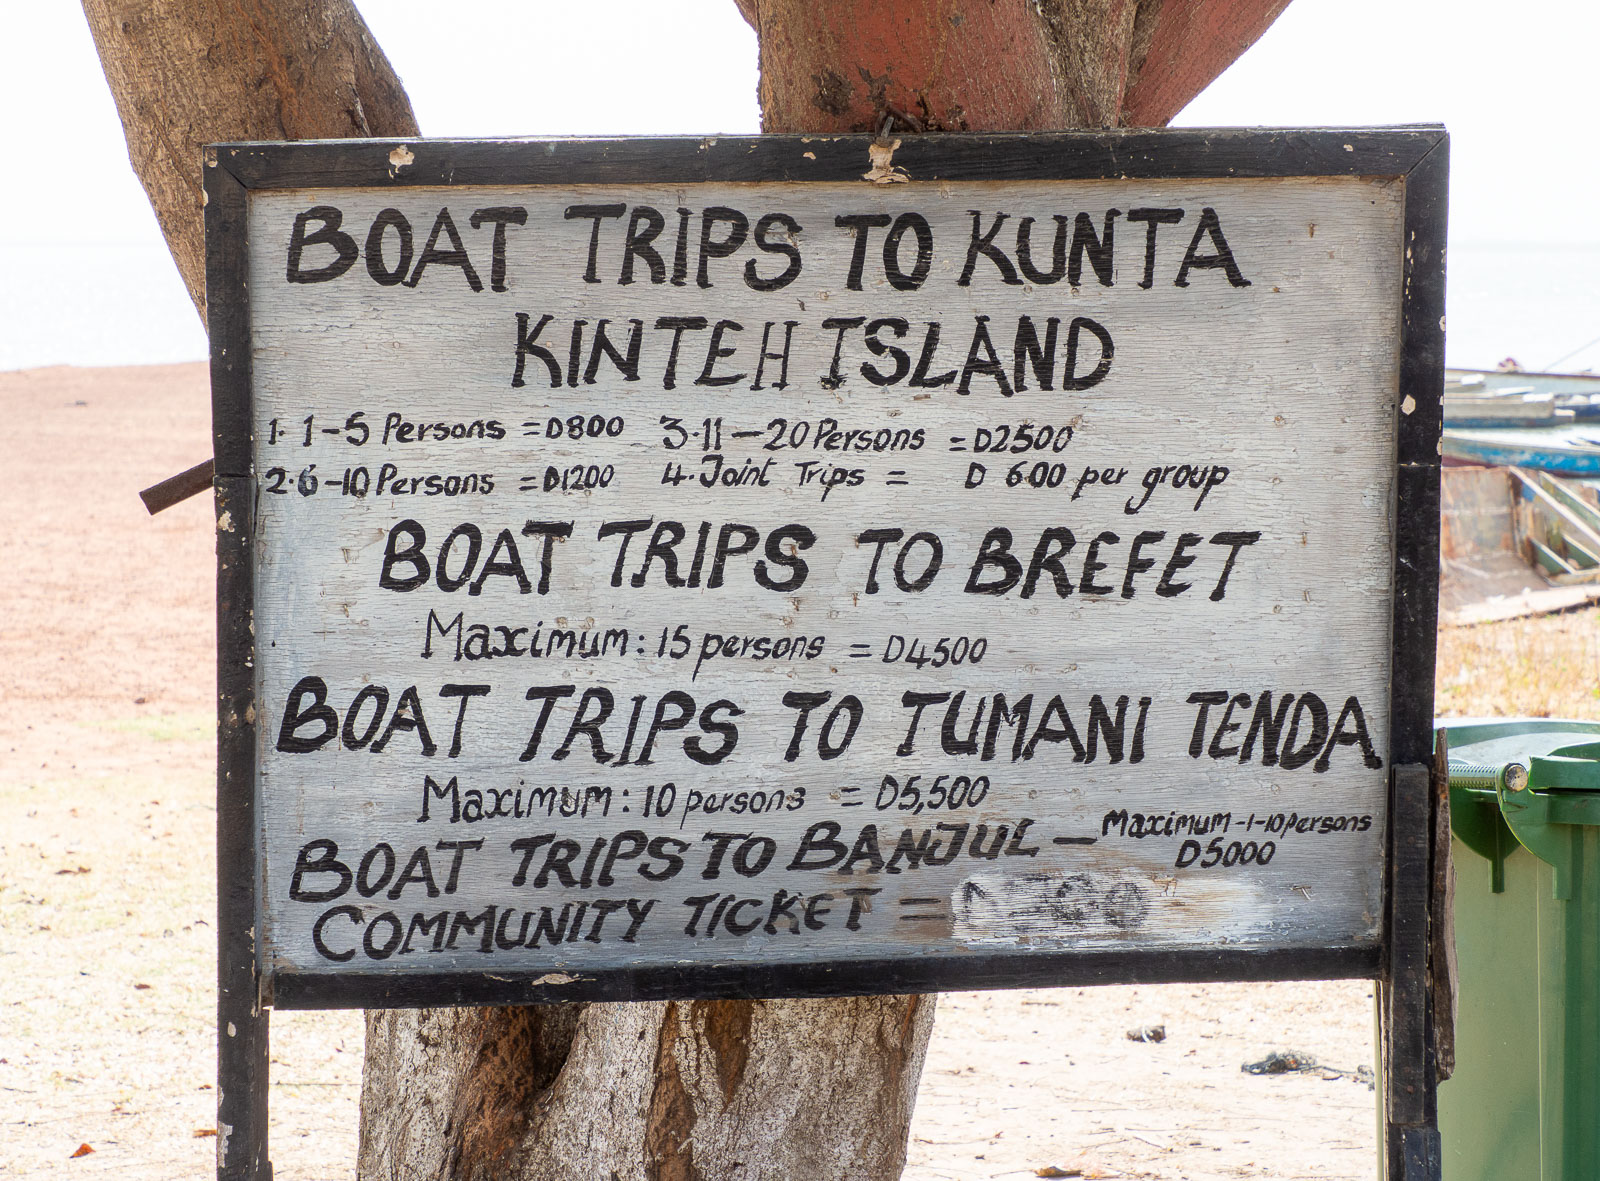 BOAT TRIPS TO KUNTA
KINTEH ISLAND
1. 1-5 Persons = D800 3.11-20 Persons = D2500
2.6-10 Persons = D1200 4. Joint Trips = D 600 per group
BOAT TRIPS TO BREFET
Maximum: 15 persons = D4500
BOAT TRIPS TO TUMANI TENDA
Maximum: 10 persons = D5,500
BOAT TRIPS TO BANJUL - Maximum -1-10 persons
D5000
COMMUNITY TICKET =